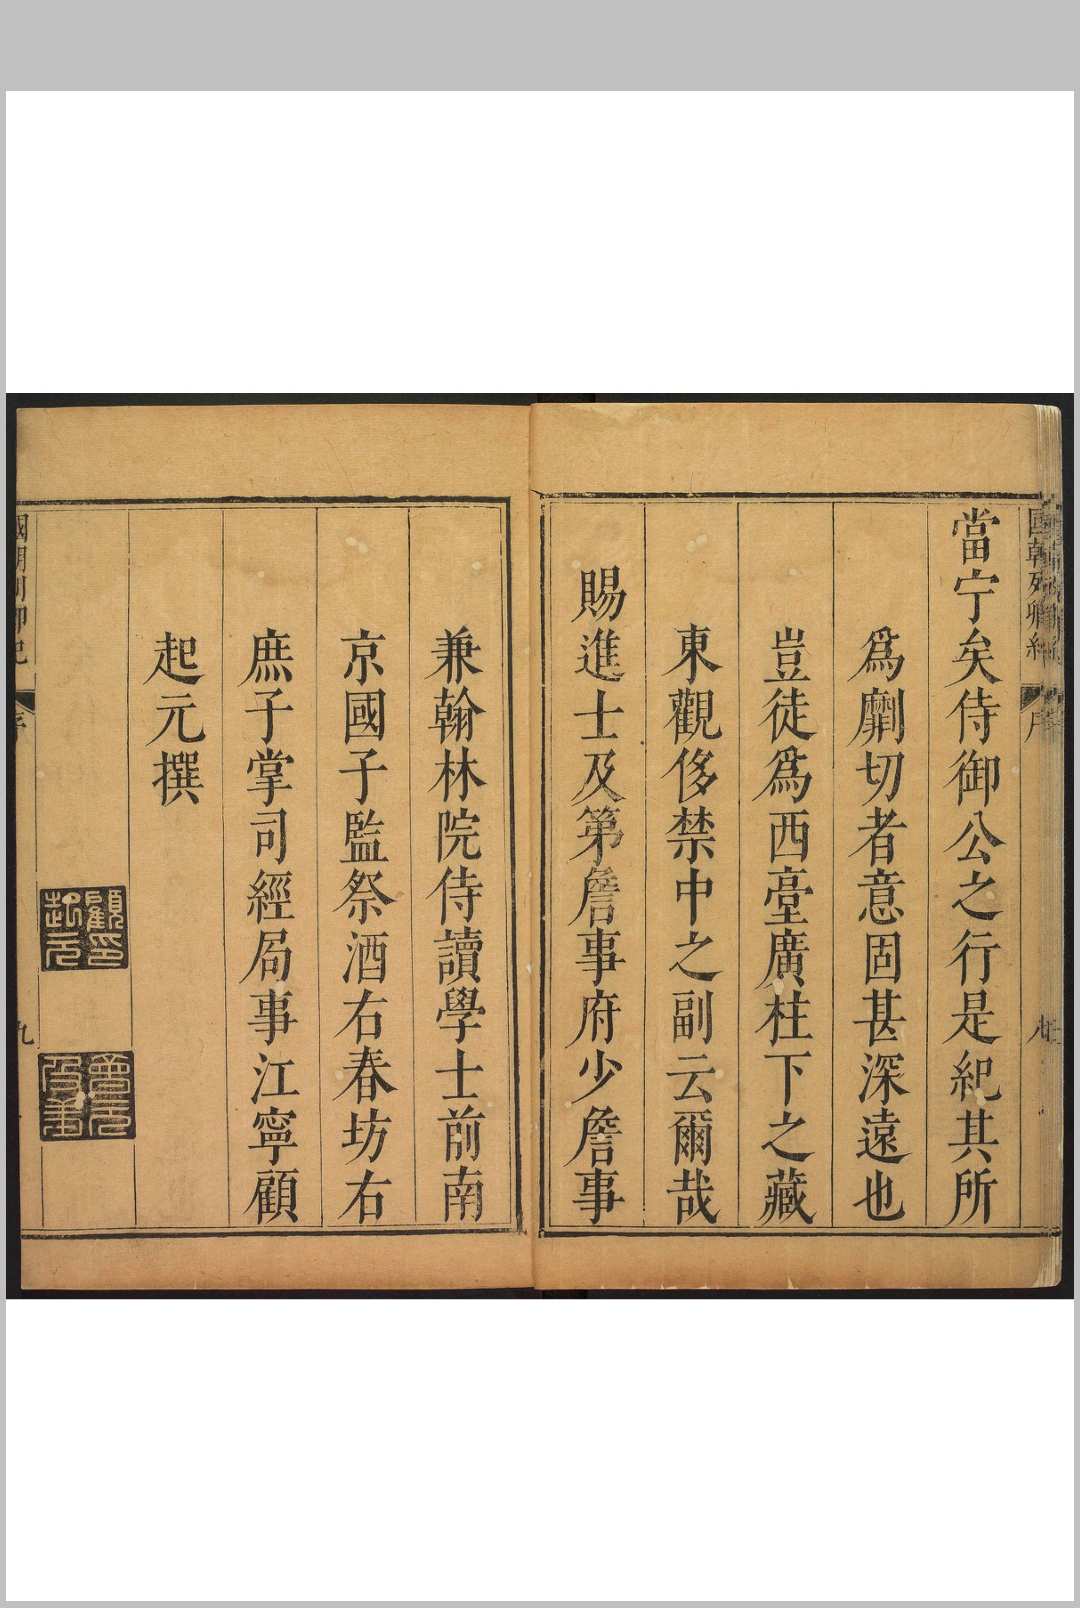 當宁矣侍御公之行是紀其所
爲劘切者意固甚深遠也
豈徒爲西臺廣柱下之藏
東觀侈禁中之副云爾哉
賜進士及第詹事府少詹事
兼翰林院侍讀學士前南
京國子監祭酒右春坊右
庶子掌司經局事江寧顧
起元撰
顧起元印
國朝列卿紀
序
九